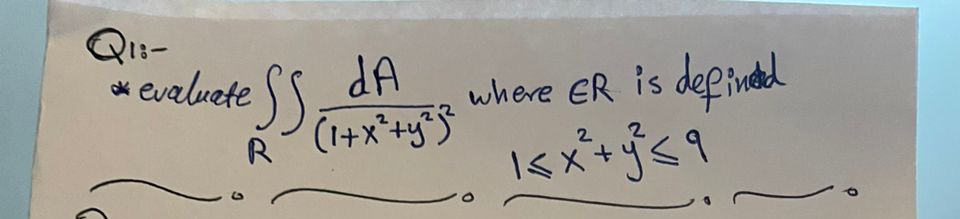 Q1:-
* evaluate ∬_R dA/(1+x²+y²)² where ∈R is defined
1≤x²+y²≤9